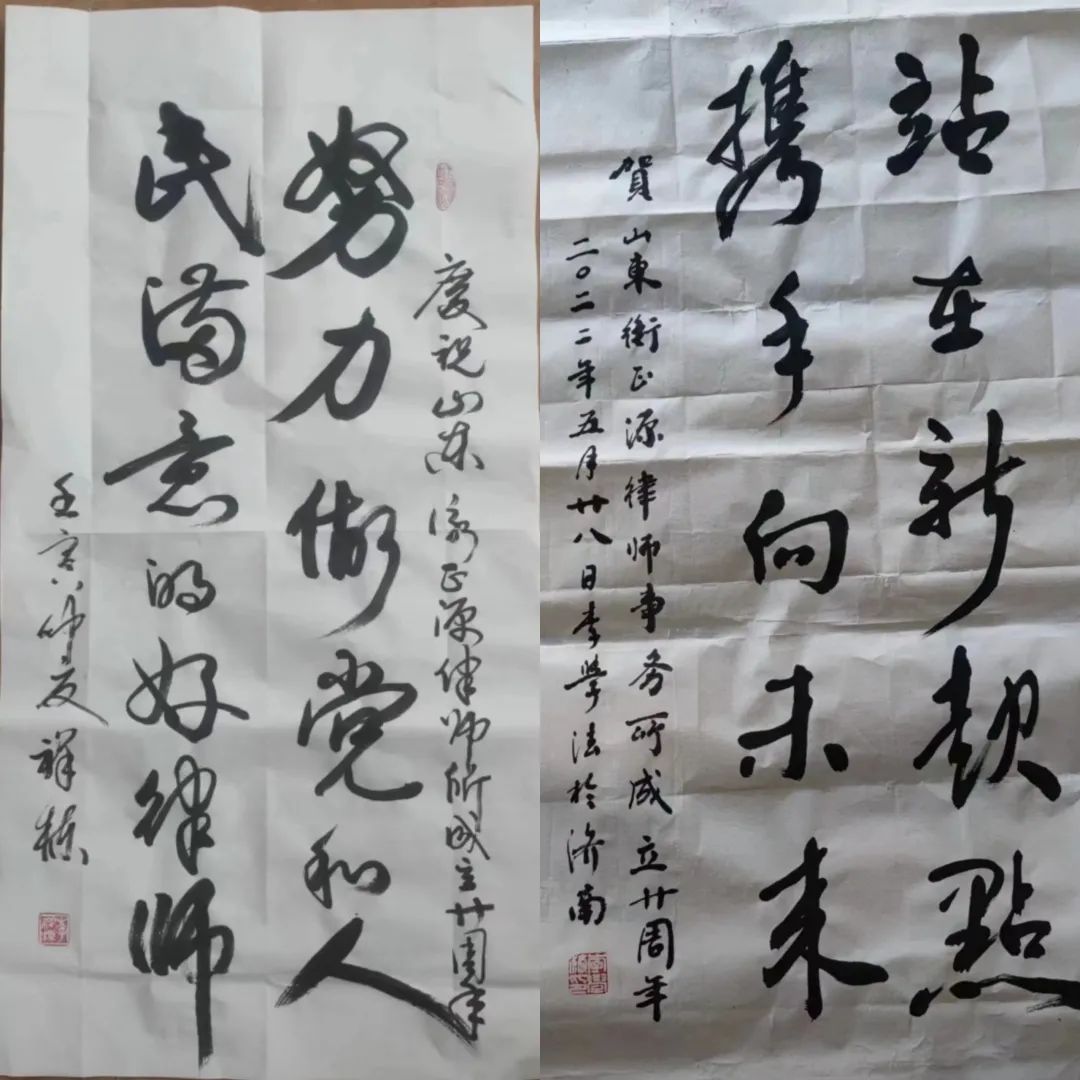 慶祝山东衡正源律师所成立廿周年
努力做党和人
民满意的好律师
壬寅仲夏 祥楼
站在新起點
携手向未来
賀山東衡正源律师事务所成立廿周年
二〇二二年五月廿八日李學法於济南